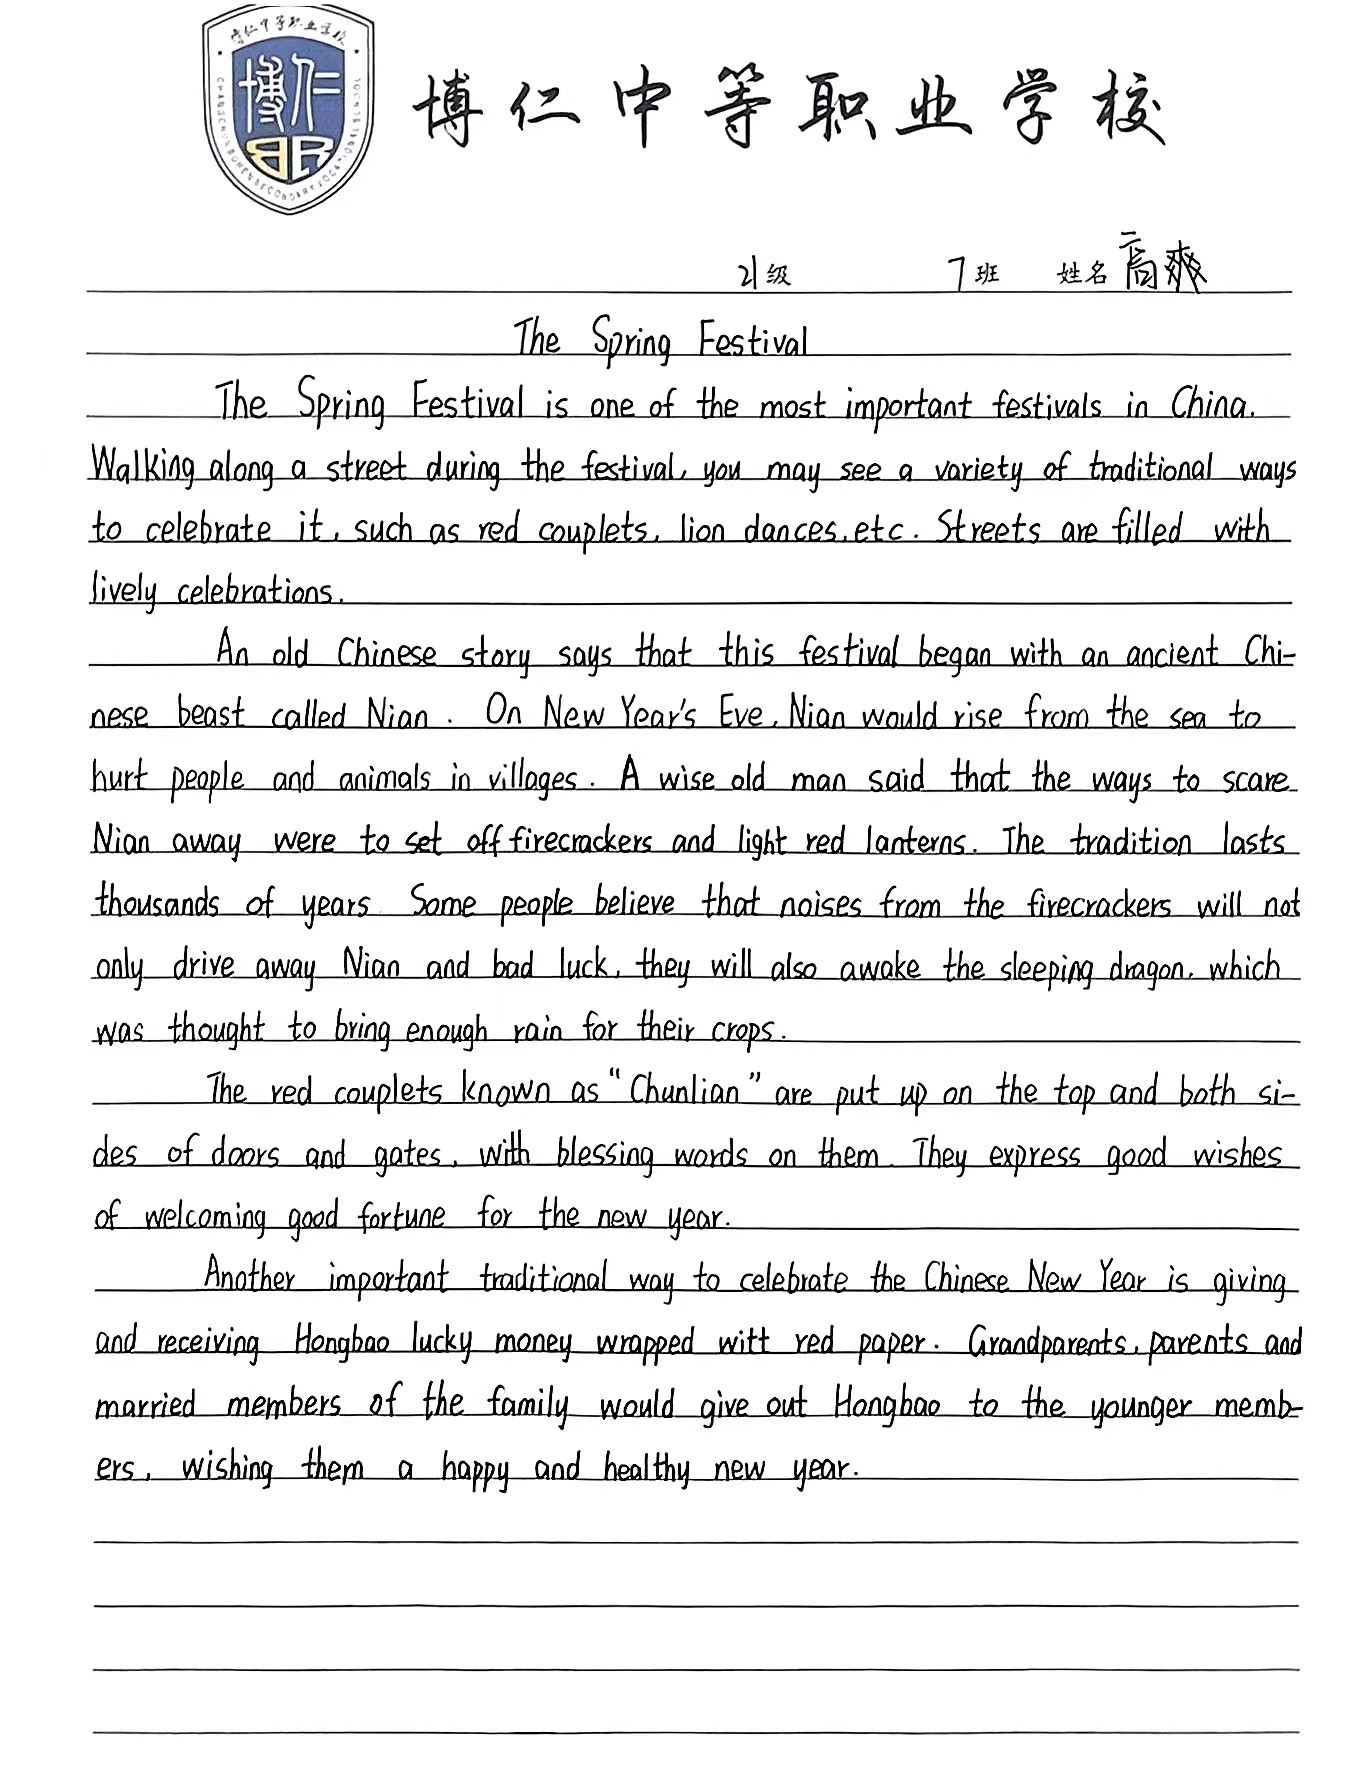 博仁中等职业学校
博仁
BR
CHANGCHUN BOREN SECONDARY VOCATIONAL SCHOOL
博仁中等职业学校
21级 7班 姓名 高爽
The Spring Festival
The Spring Festival is one of the most important festivals in China.
Walking along a street during the festival, you may see a variety of traditional ways
to celebrate it, such as red couplets, lion dances, etc. Streets are filled with
lively celebrations.
An old Chinese story says that this festival began with an ancient Chi-
nese beast called Nian. On New Year's Eve, Nian would rise from the sea to
hurt people and animals in villages. A wise old man said that the ways to scare
Nian away were to set off firecrackers and light red lanterns. The tradition lasts
thousands of years. Some people believe that noises from the firecrackers will not
only drive away Nian and bad luck, they will also awake the sleeping dragon, which
was thought to bring enough rain for their crops.
The red couplets known as "Chunlian" are put up on the top and both si-
des of doors and gates, with blessing words on them. They express good wishes
of welcoming good fortune for the new year.
Another important traditional way to celebrate the Chinese New Year is giving
and receiving Hongbao lucky money wrapped witt red paper. Grandparents, parents and
married members of the family would give out Hongbao to the younger memb-
ers, wishing them a happy and healthy new year.